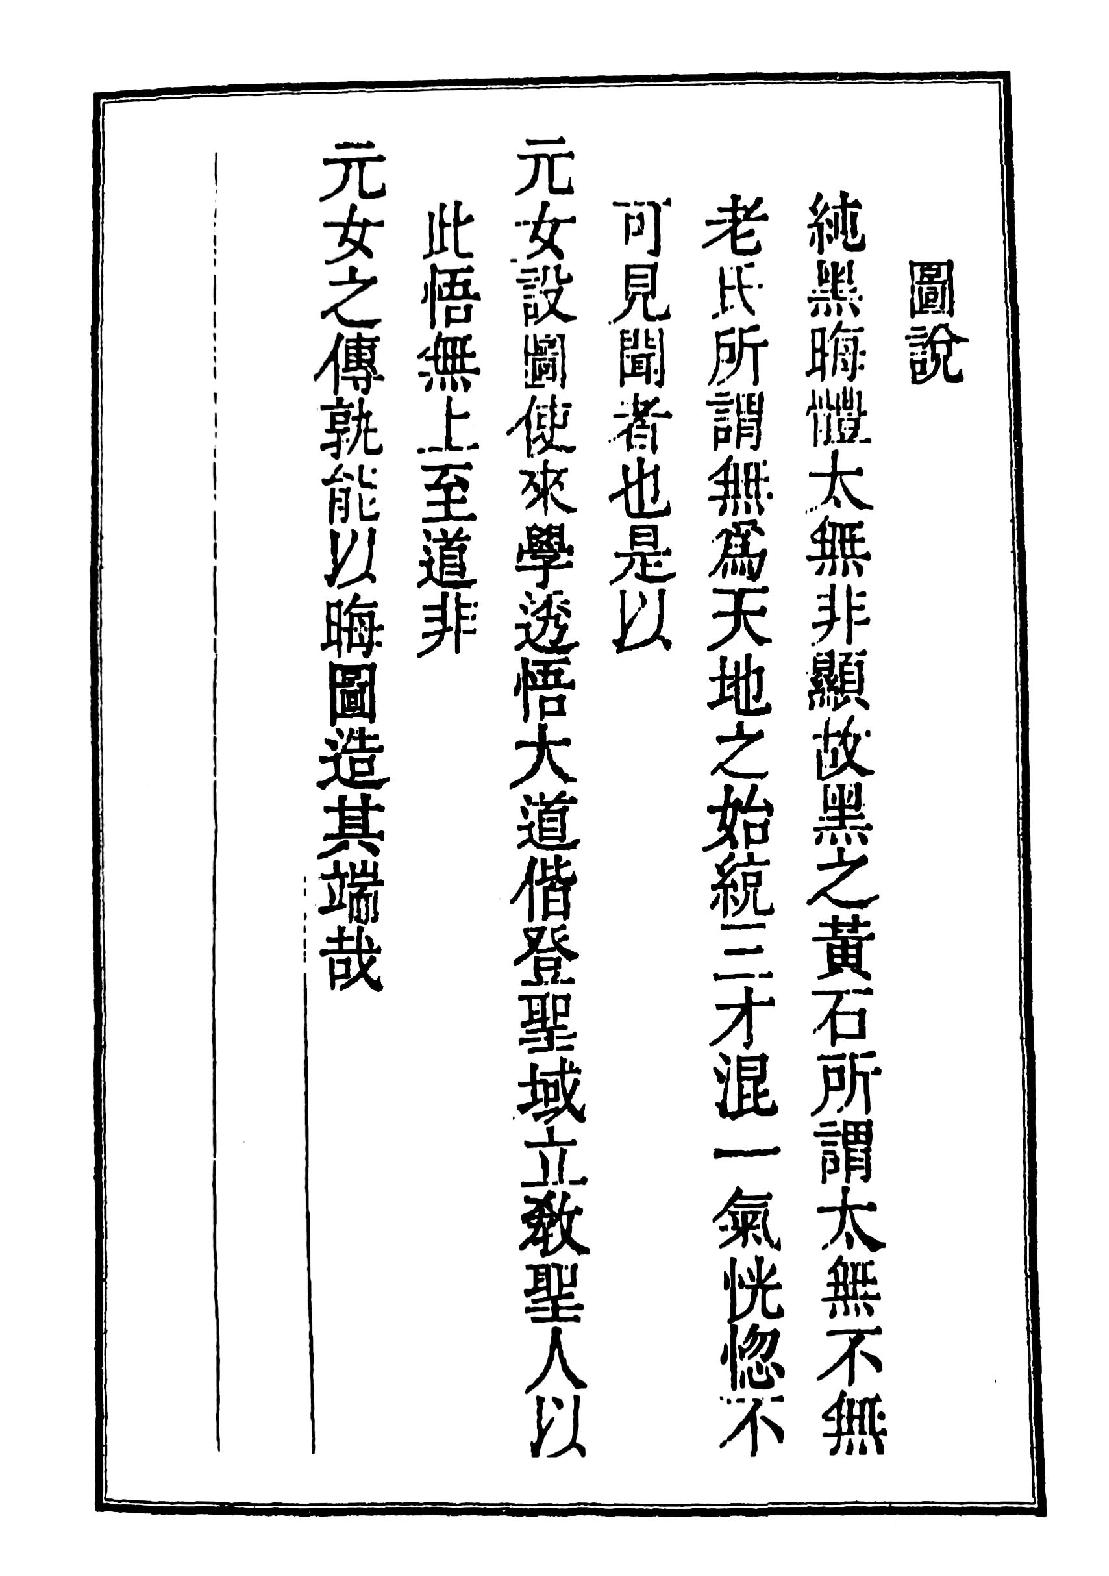 圖說
純黑晦體太無非顯故黑之黃石所謂太無不無
老氏所謂無爲天地之始統三才混一氣恍惚不
可見聞者也是以
元女設圖使來學透悟大道偕登聖域立敎聖人以
此悟無上至道非
元女之傳孰能以晦圖造其端哉